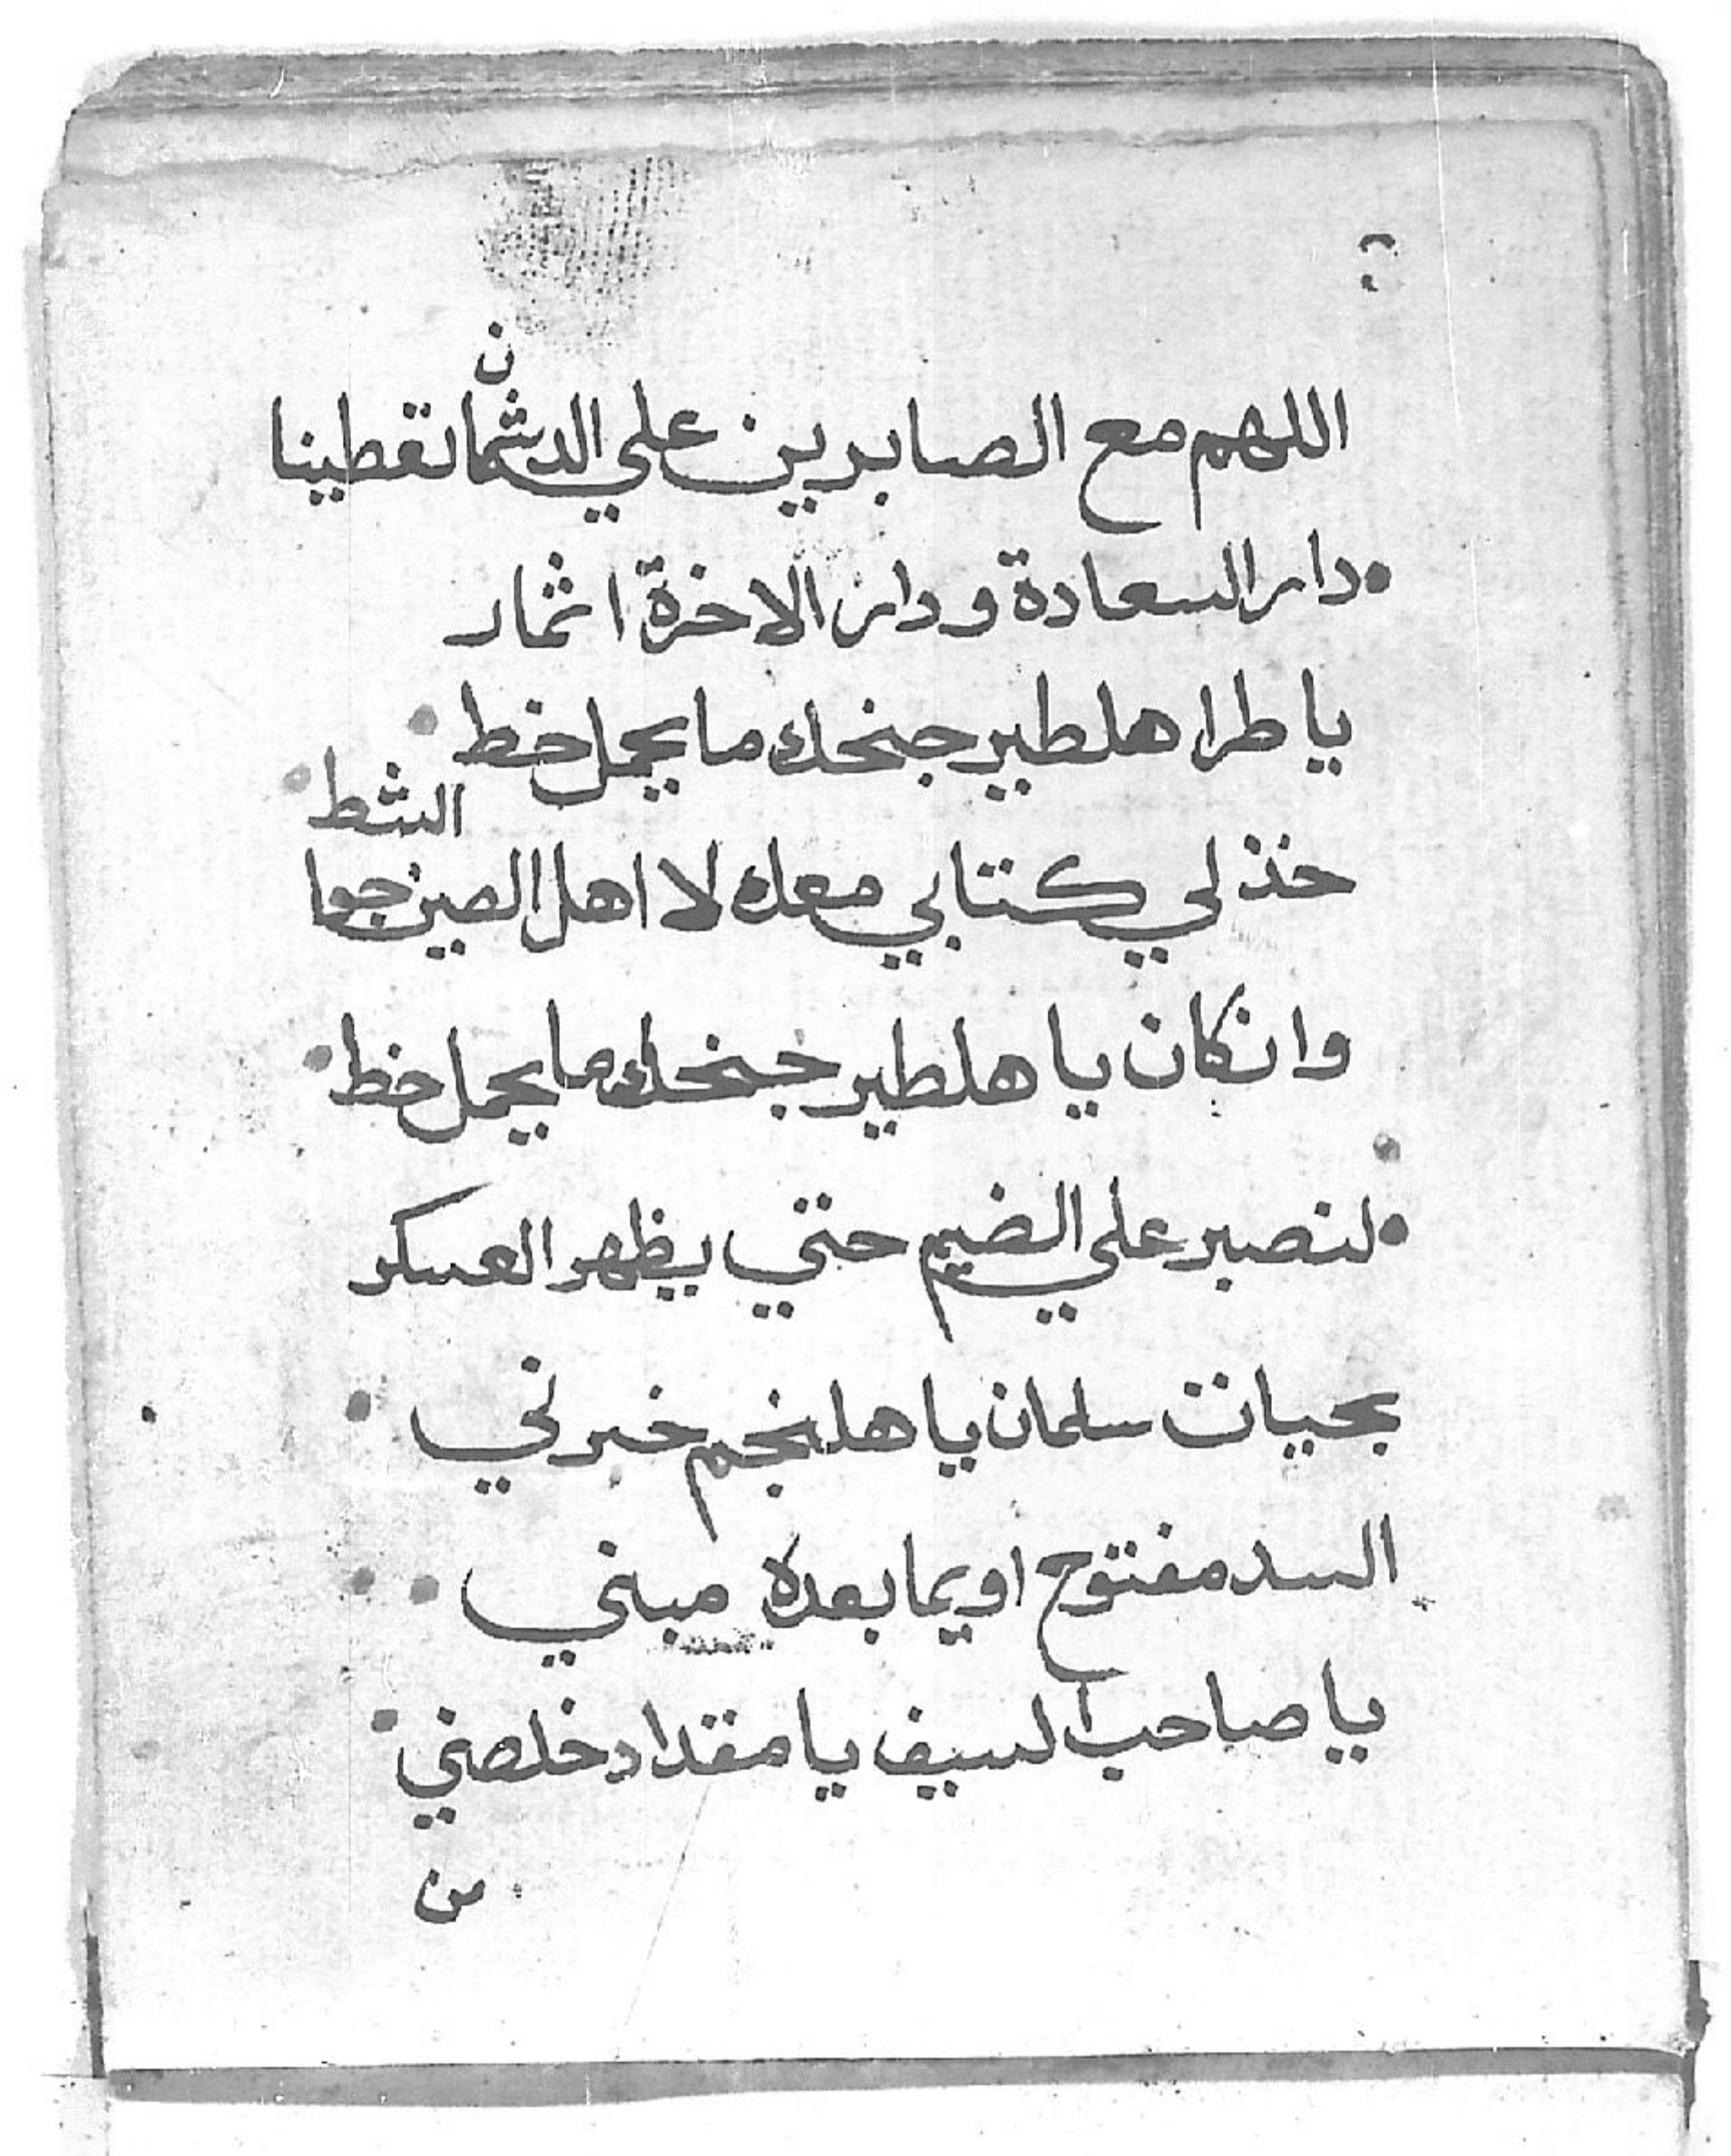 اللهم مع الصابرين علي الدشمان تعطينا
دار السعادة ودار الاخرة اثمار
يا طرا هلطير جنحك ما يحمل خط
خذ لي كتابي معك لا اهل الصين جوا الشط
وانكان يا هلطير جنحك ما يحمل خط
لنصبر علي الضيم حتي يظهر العسكر
بحيات سلمان يا هلنجم خبرني
السد مفتوح اويما بعده مبني
يا صاحب السيف يا مقداد خلصني
من